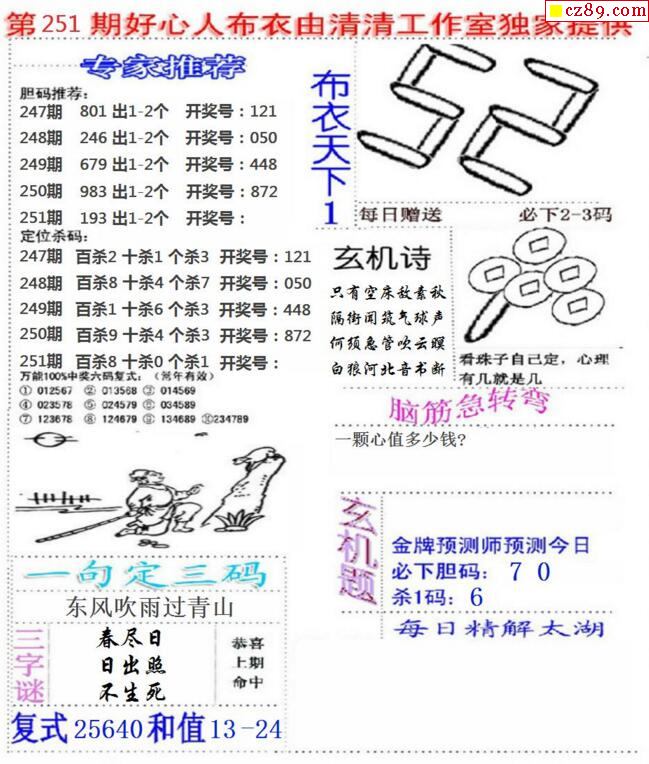 cz89.com
第251期好心人布衣由清清工作室独家提供
专家推荐
胆码推荐:
247期 801 出1-2个 开奖号:121
248期 246 出1-2个 开奖号:050
249期 679 出1-2个 开奖号:448
250期 983 出1-2个 开奖号:872
251期 193 出1-2个 开奖号:
定位杀码:
247期 百杀2 十杀1 个杀3 开奖号:121
248期 百杀8 十杀4 个杀7 开奖号:050
249期 百杀1 十杀6 个杀3 开奖号:448
250期 百杀9 十杀4 个杀3 开奖号:872
251期 百杀8 十杀0 个杀1 开奖号:
万能100%中奖六码复式:(常年有效)
① 012567 ② 013568 ③ 014569
④ 023578 ⑤ 024579 ⑥ 034589
⑦ 123678 ⑧ 124679 ⑨ 134689 ⑩234789
一句定三码
东风吹雨过青山
三字谜
春尽日
日出照
不生死
恭喜
上期
命中
复式25640和值13-24
布衣天下1
52
每日赠送 必下2-3码
玄机诗
只有空床敌素秋
隔街闻筑气球声
何须急管吹云暝
白狼河北音书断
看珠子自己定,心理
有几就是几
脑筋急转弯
一颗心值多少钱?
玄机题
金牌预测师预测今日
必下胆码: 7 0
杀1码: 6
每日精解太湖